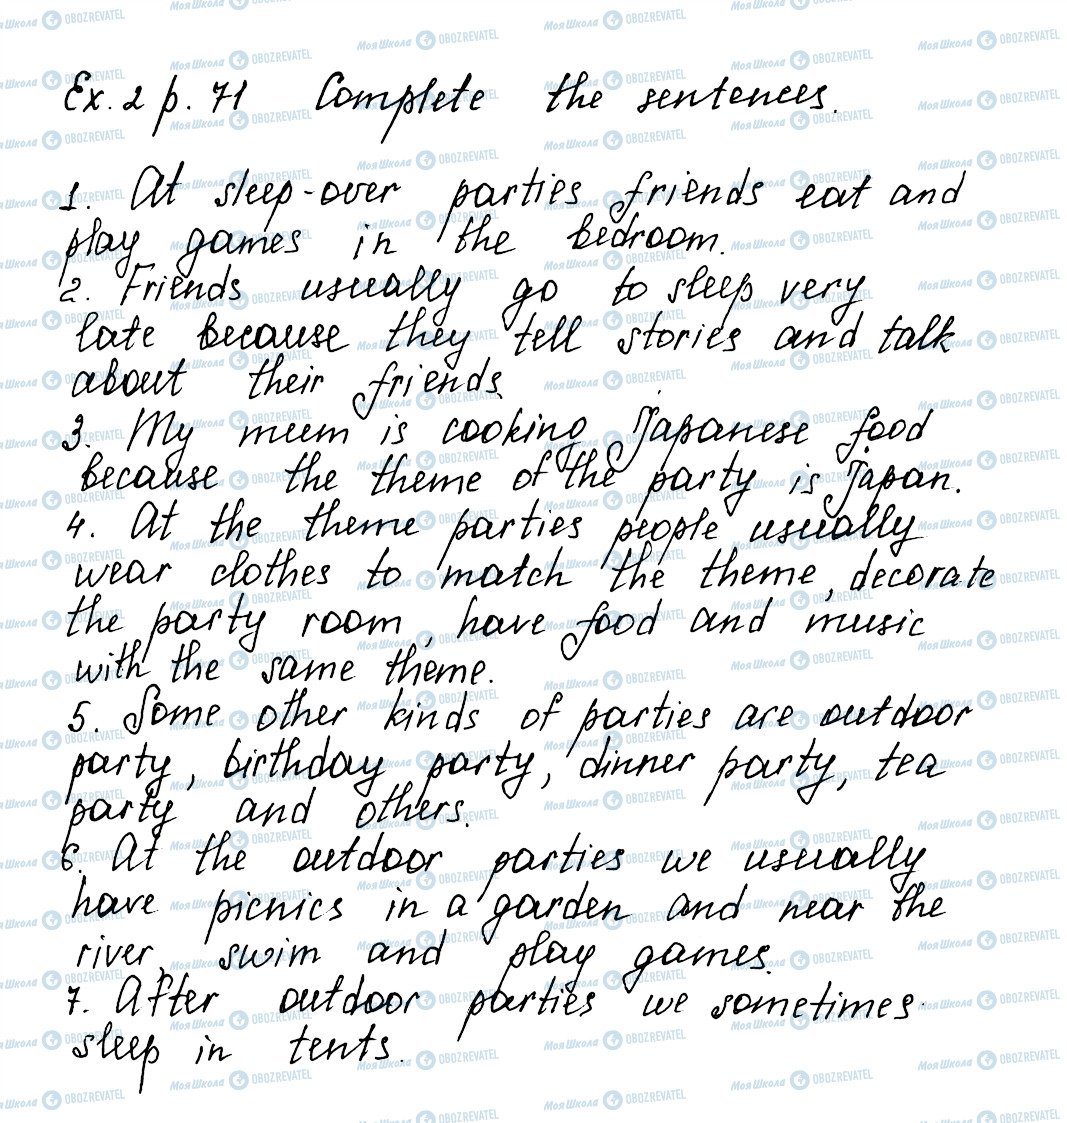 Ex. 2 p. 71 Complete the sentences.
1. At sleep-over parties friends eat and
play games in the bedroom.
2. Friends usually go to sleep very
late because they tell stories and talk
about their friends.
3. My mum is cooking Japanese food
because the theme of the party is Japan.
4. At the theme parties people usually
wear clothes to match the theme, decorate
the party room, have food and music
with the same theme.
5. Some other kinds of parties are outdoor
party, birthday party, dinner party, tea
party and others.
6. At the outdoor parties we usually
have picnics in a garden and near the
river, swim and play games.
7. After outdoor parties we sometimes
sleep in tents.